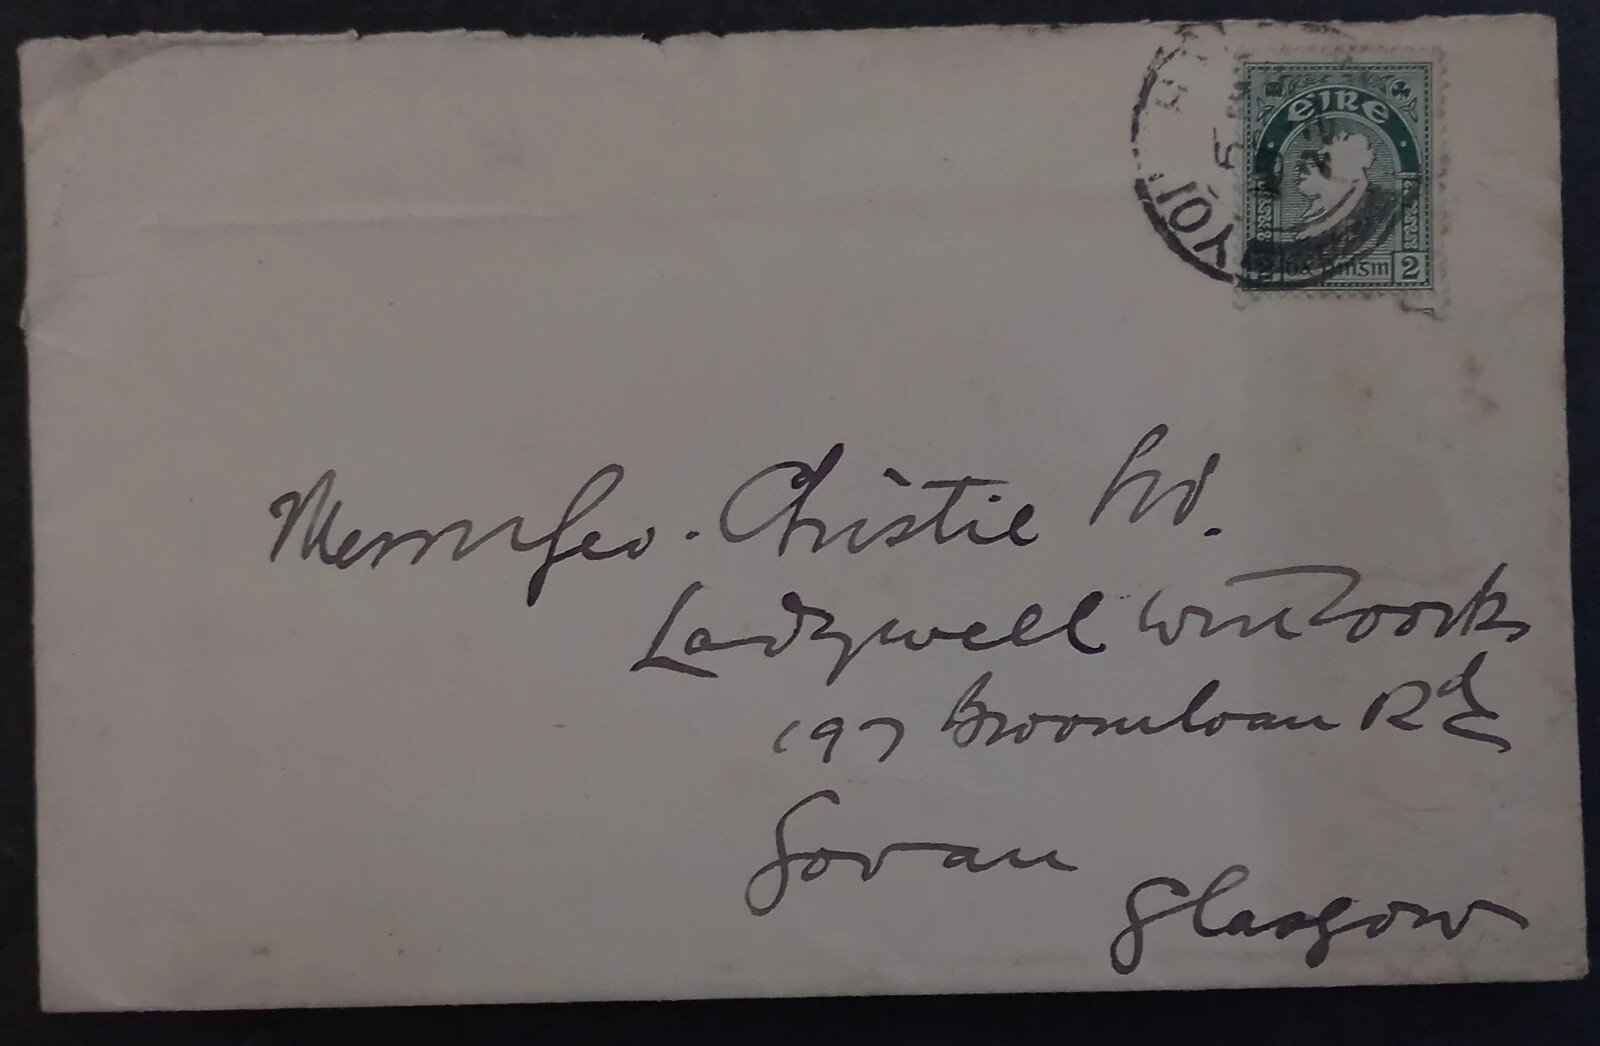 ÉIRE
2 pinsin 2
Messrs Geo. Christie Ltd.
Ladywell Wireworks
197 Broomloan Rd
Govan
Glasgow